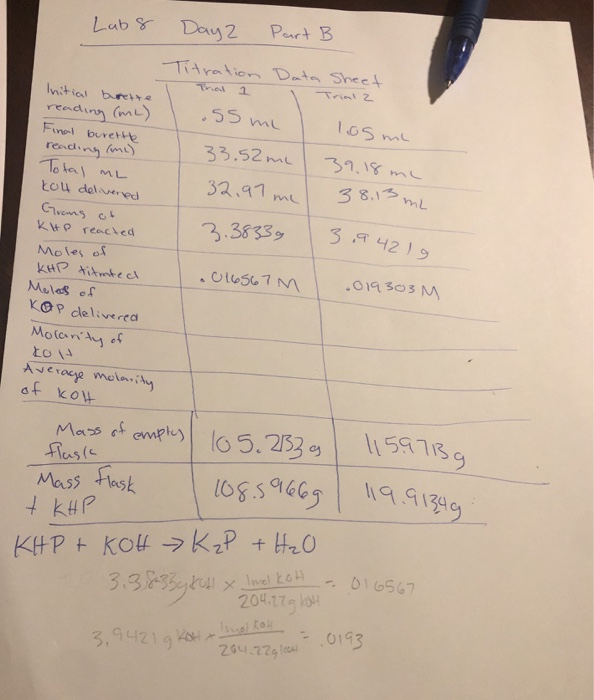 Lab 8 Day 2 Part B
Titration Data Sheet
Trial 1 Trial 2
Initial burette reading (mL) .55 mL 1.05 mL
Final burette reading (mL) 33.52 mL 39.18 mL
Total mL KOH delivered 32.97 mL 38.13 mL
Grams of KHP reacted 3.3833g 3.9421g
Moles of KHP titrated .016567 M .019303 M
Moles of KOP delivered
Molarity of KOH
Average molarity of KOH
Mass of empty flask 105.2133 g 115.9713 g
Mass flask + KHP 108.5966g 119.9134g
KHP + KOH → K₂P + H₂O
3.3833g KOH × 1mol KOH / 204.22g KOH = .016567
3.9421 g KOH × 1mol KOH / 204.22g KOH = .0193